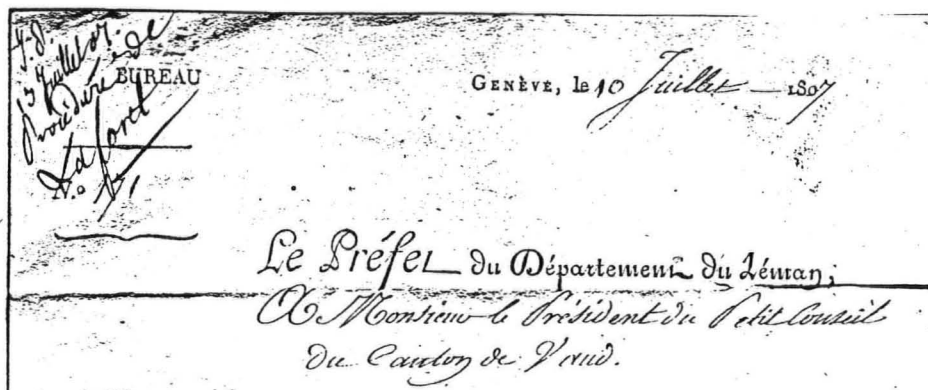 13 Juillet 07.
Procédure de
BUREAU
N.º
GENÈVE, le 10 Juillet 1807
Le Préfet du Département du Léman;
A Monsieur le Président du Petit Conseil
du Canton de Vaud.